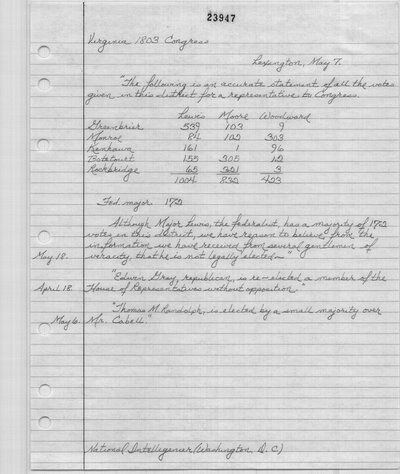 23947
Virginia 1803 Congress
Lexington, May 7.
"The following is an accurate statement of all the votes
given in this district for a representative to Congress.
Lewis Moore Woodward
Greenbrier 539 103 9
Monroe 84 102 303
Kanhawa 161 1 96
Botetourt 155 305 12
Rockbridge 65 321 3
1004 832 423
Fed. major. 172
Although Major Lewis, the federalist, has a majority of 172
votes in this district, we have reason to believe from the
information we have received from several gentlemen of
May 18. veracity, that he is not legally elected—"
"Edwin Gray, republican, is re-elected a member of the
April 18. House of Representatives without opposition."
"Thomas M. Randolph, is elected by a small majority over
May 6. Mr. Cabell"
National Intelligencer (Washington, D.C.)